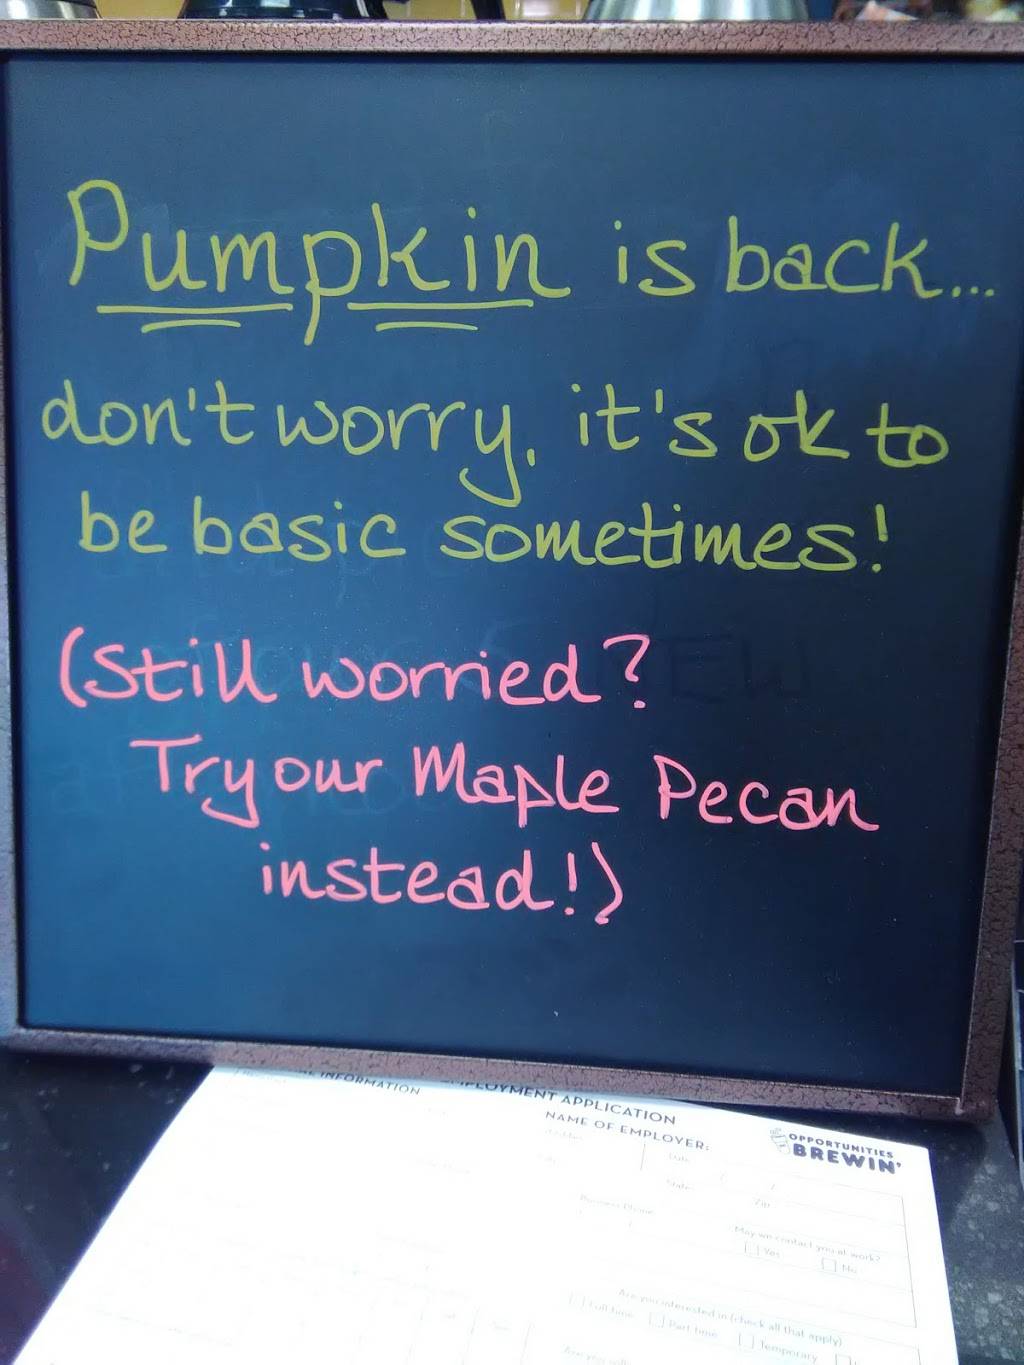 Pumpkin is back...
don't worry, it's ok to
be basic sometimes!
(Still worried?
Try our Maple Pecan
instead!)
INFORMATION
EMPLOYMENT APPLICATION
NAME OF EMPLOYER:
OPPORTUNITIES
BREWIN'
Date
State
Zip
Business Phone
May we contact you at work?
Yes No
Are you interested in (check all that apply)
Full time Part time Temporary
Are you will